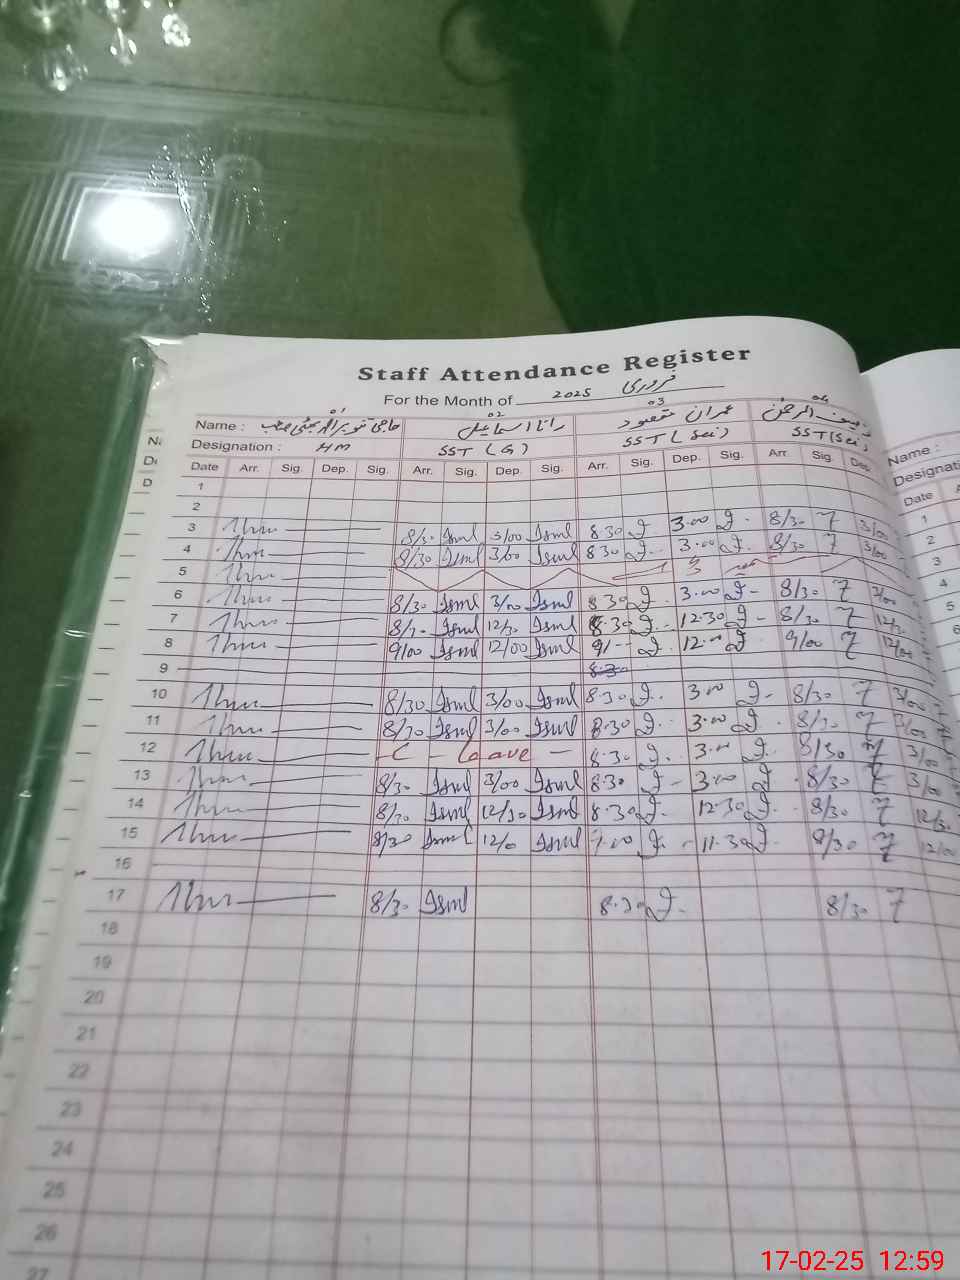 Staff Attendance Register
For the Month of 2025 فروری
01 02 03 04
Name : حاجی رانا اسماعیل عمران مقصود
Designation : HM SST (G) SST (Sci) SST (Sci)
Date Arr. Sig. Dep. Sig. Arr. Sig. Dep. Sig. Arr. Sig. Dep. Sig. Arr. Sig. Dep.
1
2
3 8/30 Isml 3/00 Isml 8.30 3.00 8/30 3/00
4 8/30 Isml 3/00 Isml 8.30 3.00 8/30 3/00
5
6 8/30 Isml 3/00 Isml 8.30 3.00 8/30 3/00
7 8/30 Isml 12/30 Isml 8.30 12.30 8/30 12/30
8 9/00 Isml 12/00 Isml 9/ 12.00 9/00 12/00
9 8.30
10 8/30 Isml 3/00 Isml 8.30 3.00 8/30 3/00
11 8/30 Isml 3/00 Isml 8.30 3.00 8/30 3/00
12 C - Leave - 8.30 3.00 8/30 3/00
13 8/30 Isml 3/00 Isml 8.30 3.00 8/30 3/00
14 8/30 Isml 12/30 Isml 8.30 12.30 8/30 12/30
15 8/30 Isml 12/0 Isml 11.30 8/30 12/00
16
17 8/30 Isml 8.30 8/30
18
19
20
21
22
23
24
25
26
27
Name :
Date
1
2
3
4
5
6
17-02-25 12:59